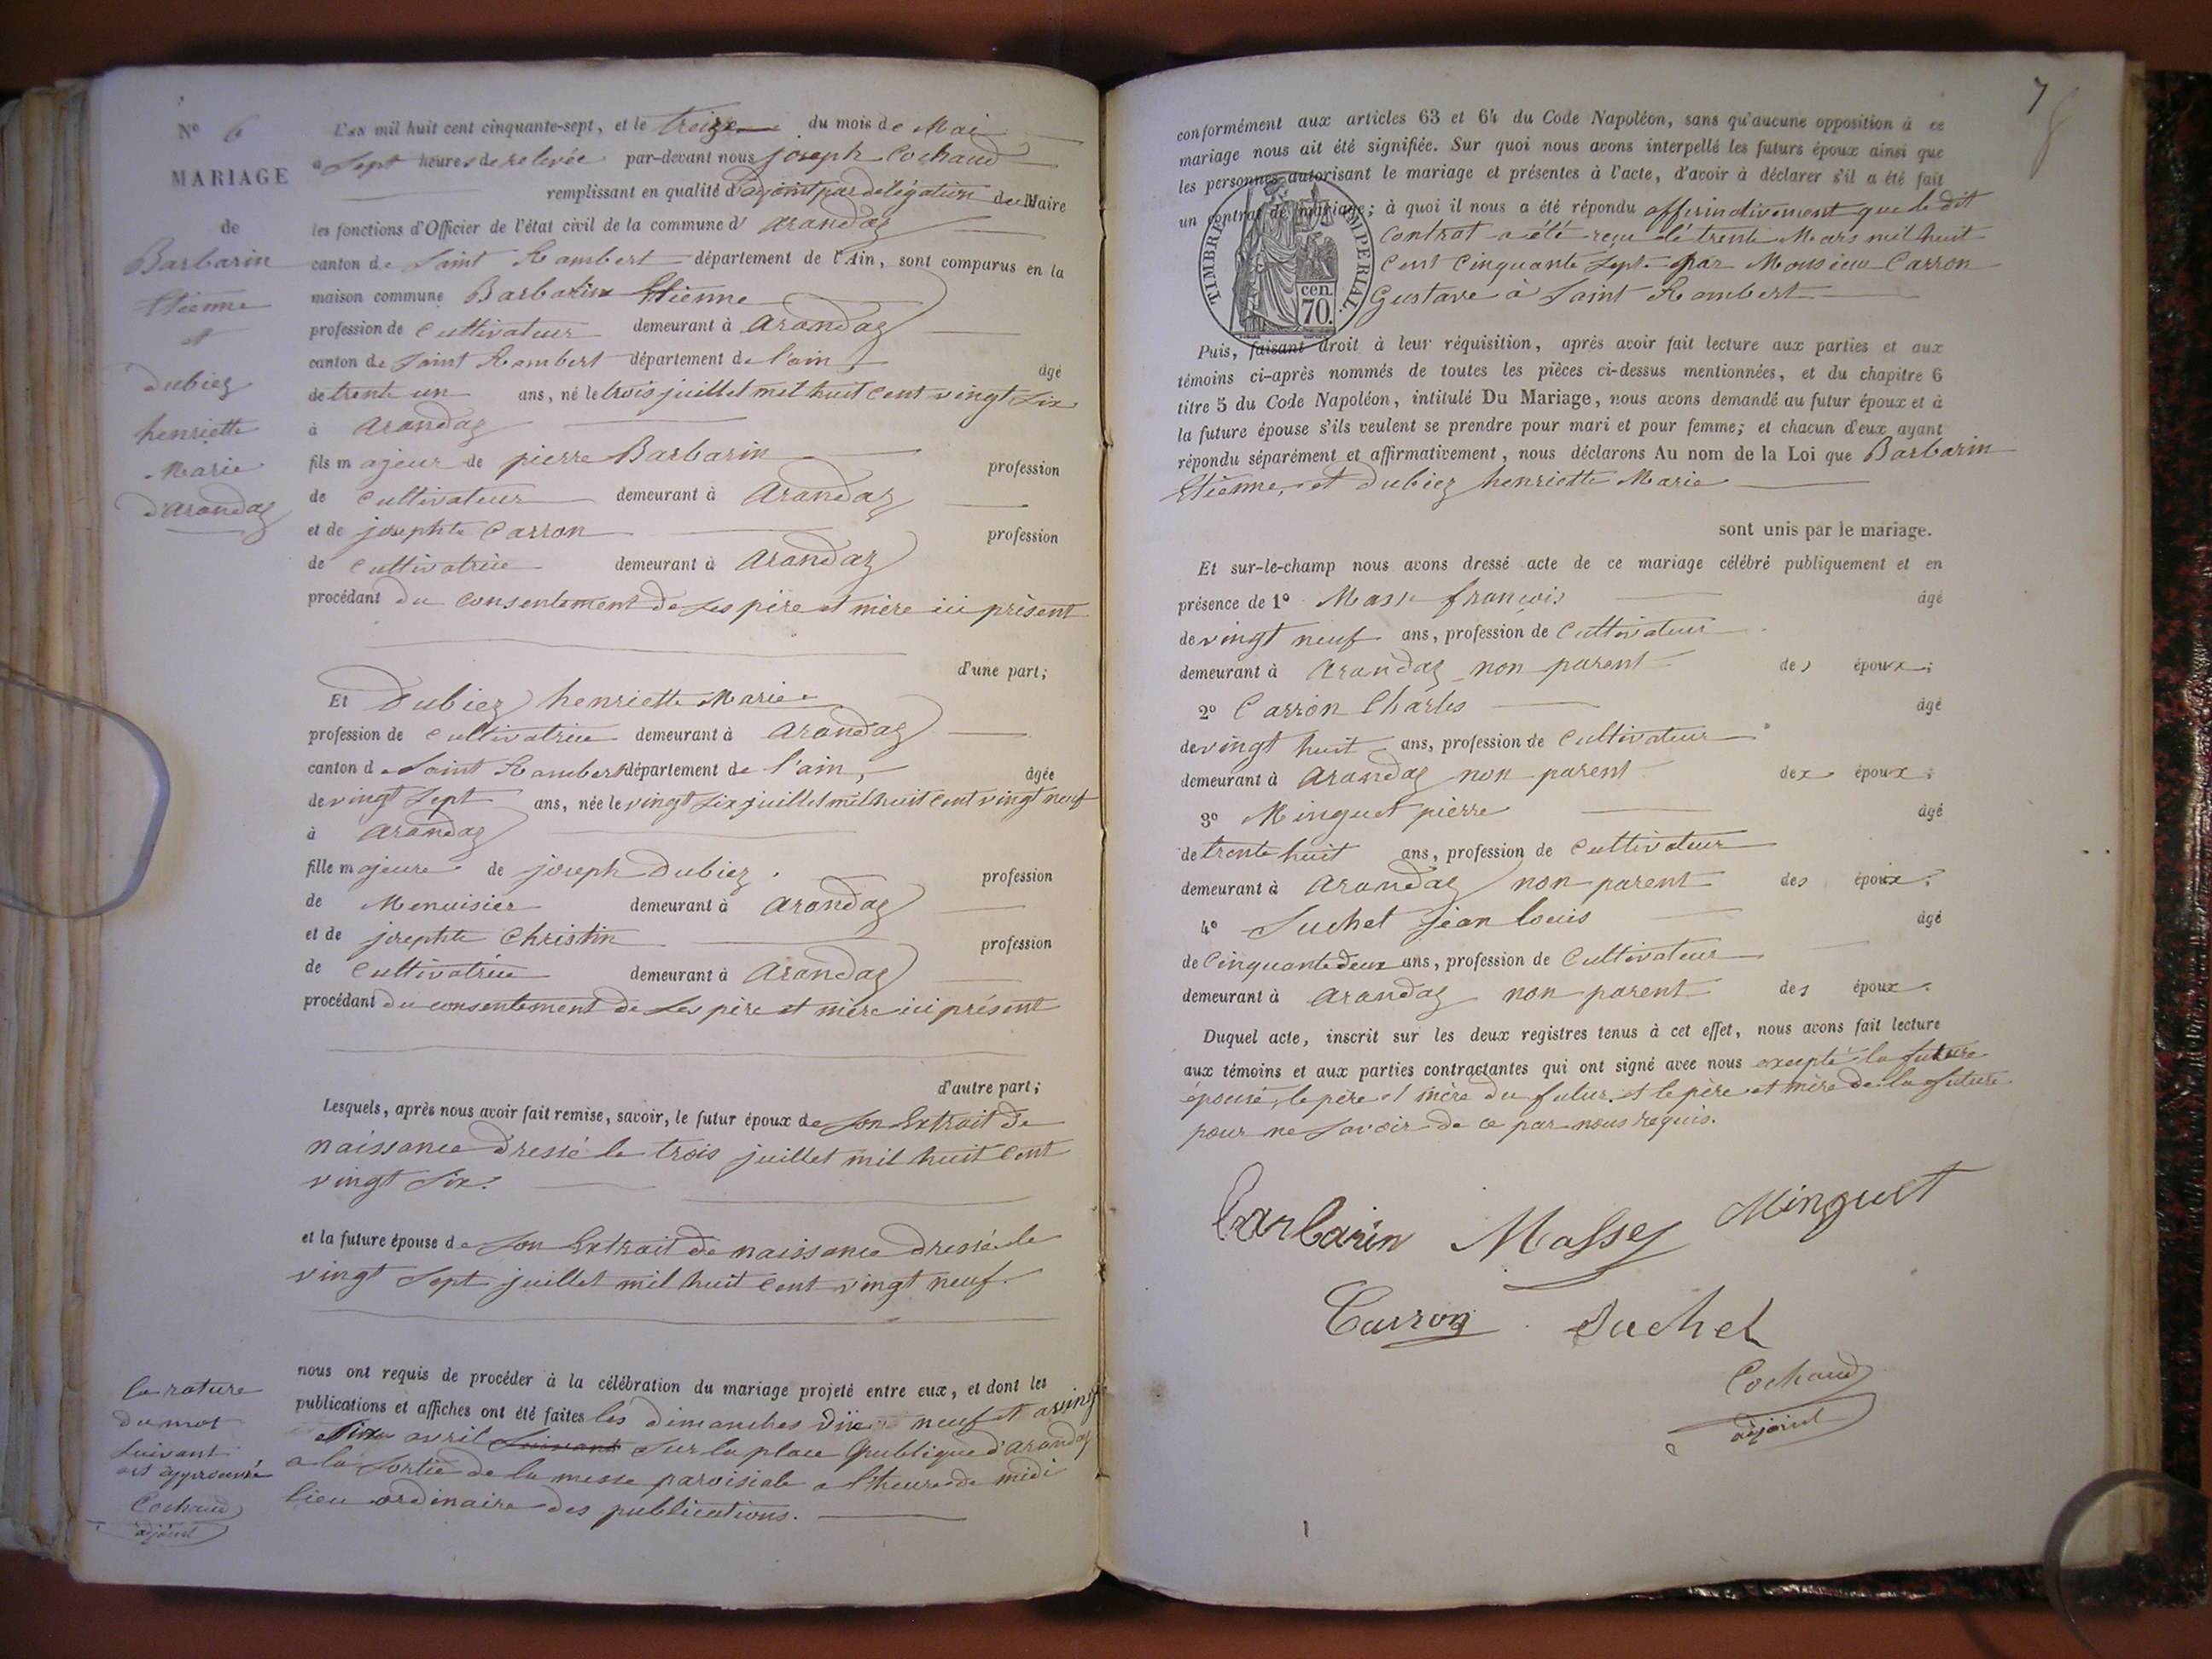 N° 6
MARIAGE
de
Barbarin
Etienne
et
Dubiez
henriette
Marie
d'arandaz
L'an mil huit cent cinquante-sept, et le treize du mois de Mai
a sept heures de relevée par-devant nous joseph Cochaud
remplissant en qualité d'adjoint par délégation du Maire
les fonctions d'Officier de l'état civil de la commune d' arandaz
canton de Saint Rambert département de l'Ain, sont comparus en la
maison commune Barbarin Etienne
profession de Cultivateur demeurant à arandaz
canton de Saint Rambert département de l'ain âgé
de trente un ans, né le trois juillet mil huit cent vingt six
à arandaz
fils majeur de pierre Barbarin profession
de Cultivateur demeurant à arandaz
et de josephte Carron profession
de Cultivatrice demeurant à arandaz
procédant du consentement de ses père et mère ici présent
d'une part;
Et Dubiez henriette Marie
profession de Cultivatrice demeurant à arandaz
canton de Saint Rambert département de l'ain, âgée
de vingt sept ans, née le vingt six juillet mil huit cent vingt neuf
à arandaz
fille majeure de joseph Dubiez profession
de Menuisier demeurant à arandaz
et de josephte Christin profession
de Cultivatrice demeurant à arandaz
procédant du consentement de ses père et mère ici présent
d'autre part;
Lesquels, après nous avoir fait remise, savoir, le futur époux de son Extrait de
naissance dressé le trois juillet mil huit cent
vingt six.
et la future épouse de son Extrait de naissance dressé le
vingt sept juillet mil huit cent vingt neuf.
nous ont requis de procéder à la célébration du mariage projeté entre eux, et dont les
publications et affiches ont été faites les dimanches neuf et vingt
six avril suivant sur la place publique d'arandaz
a la sortie de la messe paroisiale a l'heure de midi
lieu ordinaire des publications.
la rature
du mot
suivant
est approuvée
Cochaud
adjoint
7
conformément aux articles 63 et 64 du Code Napoléon, sans qu'aucune opposition à ce
mariage nous ait été signifiée. Sur quoi nous avons interpellé les futurs époux ainsi que
les personnes autorisant le mariage et présentes à l'acte, d'avoir à déclarer s'il a été fait
un contrat de mariage; à quoi il nous a été répondu affirmativement que le dit
Contrat a été reçu le trente Mars mil huit
Cent Cinquante Sept par Monsieur Carron
Gustave à Saint Rambert
TIMBRE IMPERIAL
cen.
70.
Puis, faisant droit à leur réquisition, après avoir fait lecture aux parties et aux
témoins ci-après nommés de toutes les pièces ci-dessus mentionnées, et du chapitre 6
titre 5 du Code Napoléon, intitulé Du Mariage, nous avons demandé au futur époux et à
la future épouse s'ils veulent se prendre pour mari et pour femme; et chacun d'eux ayant
répondu séparément et affirmativement, nous déclarons Au nom de la Loi que Barbarin
Etienne, et Dubiez henriette Marie
sont unis par le mariage.
Et sur-le-champ nous avons dressé acte de ce mariage célébré publiquement et en
présence de 1° Masse françois âgé
de vingt neuf ans, profession de Cultivateur
demeurant à arandaz non parent des époux;
2° Carron Charles âgé
de vingt huit ans, profession de Cultivateur
demeurant à arandaz non parent des époux;
3° Minguet pierre âgé
de trente huit ans, profession de Cultivateur
demeurant à arandaz non parent des époux;
4° Suchet jean louis âgé
de Cinquante deux ans, profession de Cultivateur
demeurant à arandaz non parent des époux.
Duquel acte, inscrit sur les deux registres tenus à cet effet, nous avons fait lecture
aux témoins et aux parties contractantes qui ont signé avec nous excepté la future
épouse, le père et mère du futur et le père et mère de la future
pour ne savoir de ce par nous requis.
Barbarin Massey Minguet
Carron Suchet
Cochaud
adjoint